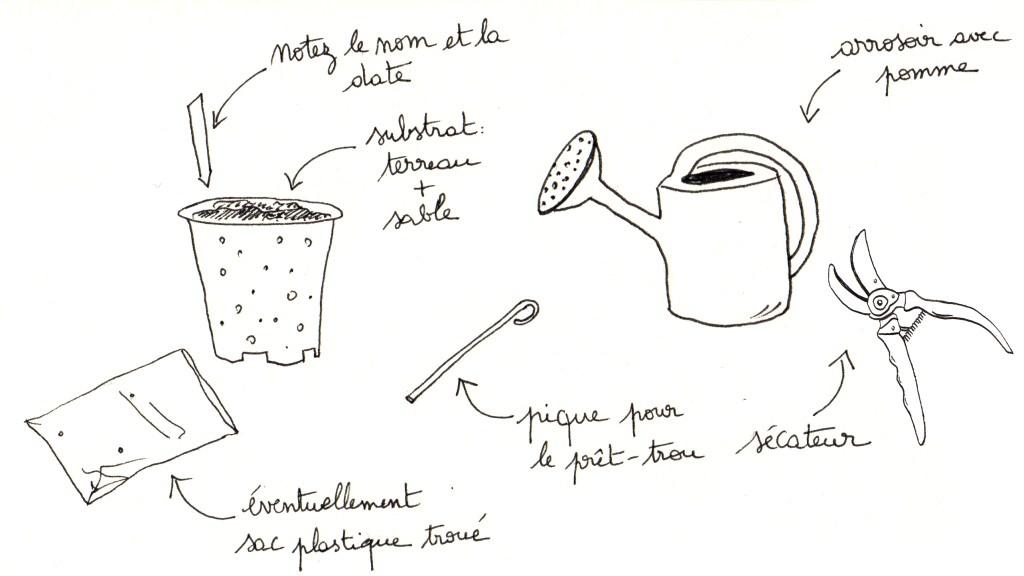 notez le nom et la
date
arrosoir avec
pomme
substrat:
terreau
+
sable
pique pour
le prêt-trou
sécateur
éventuellement
sac plastique troué